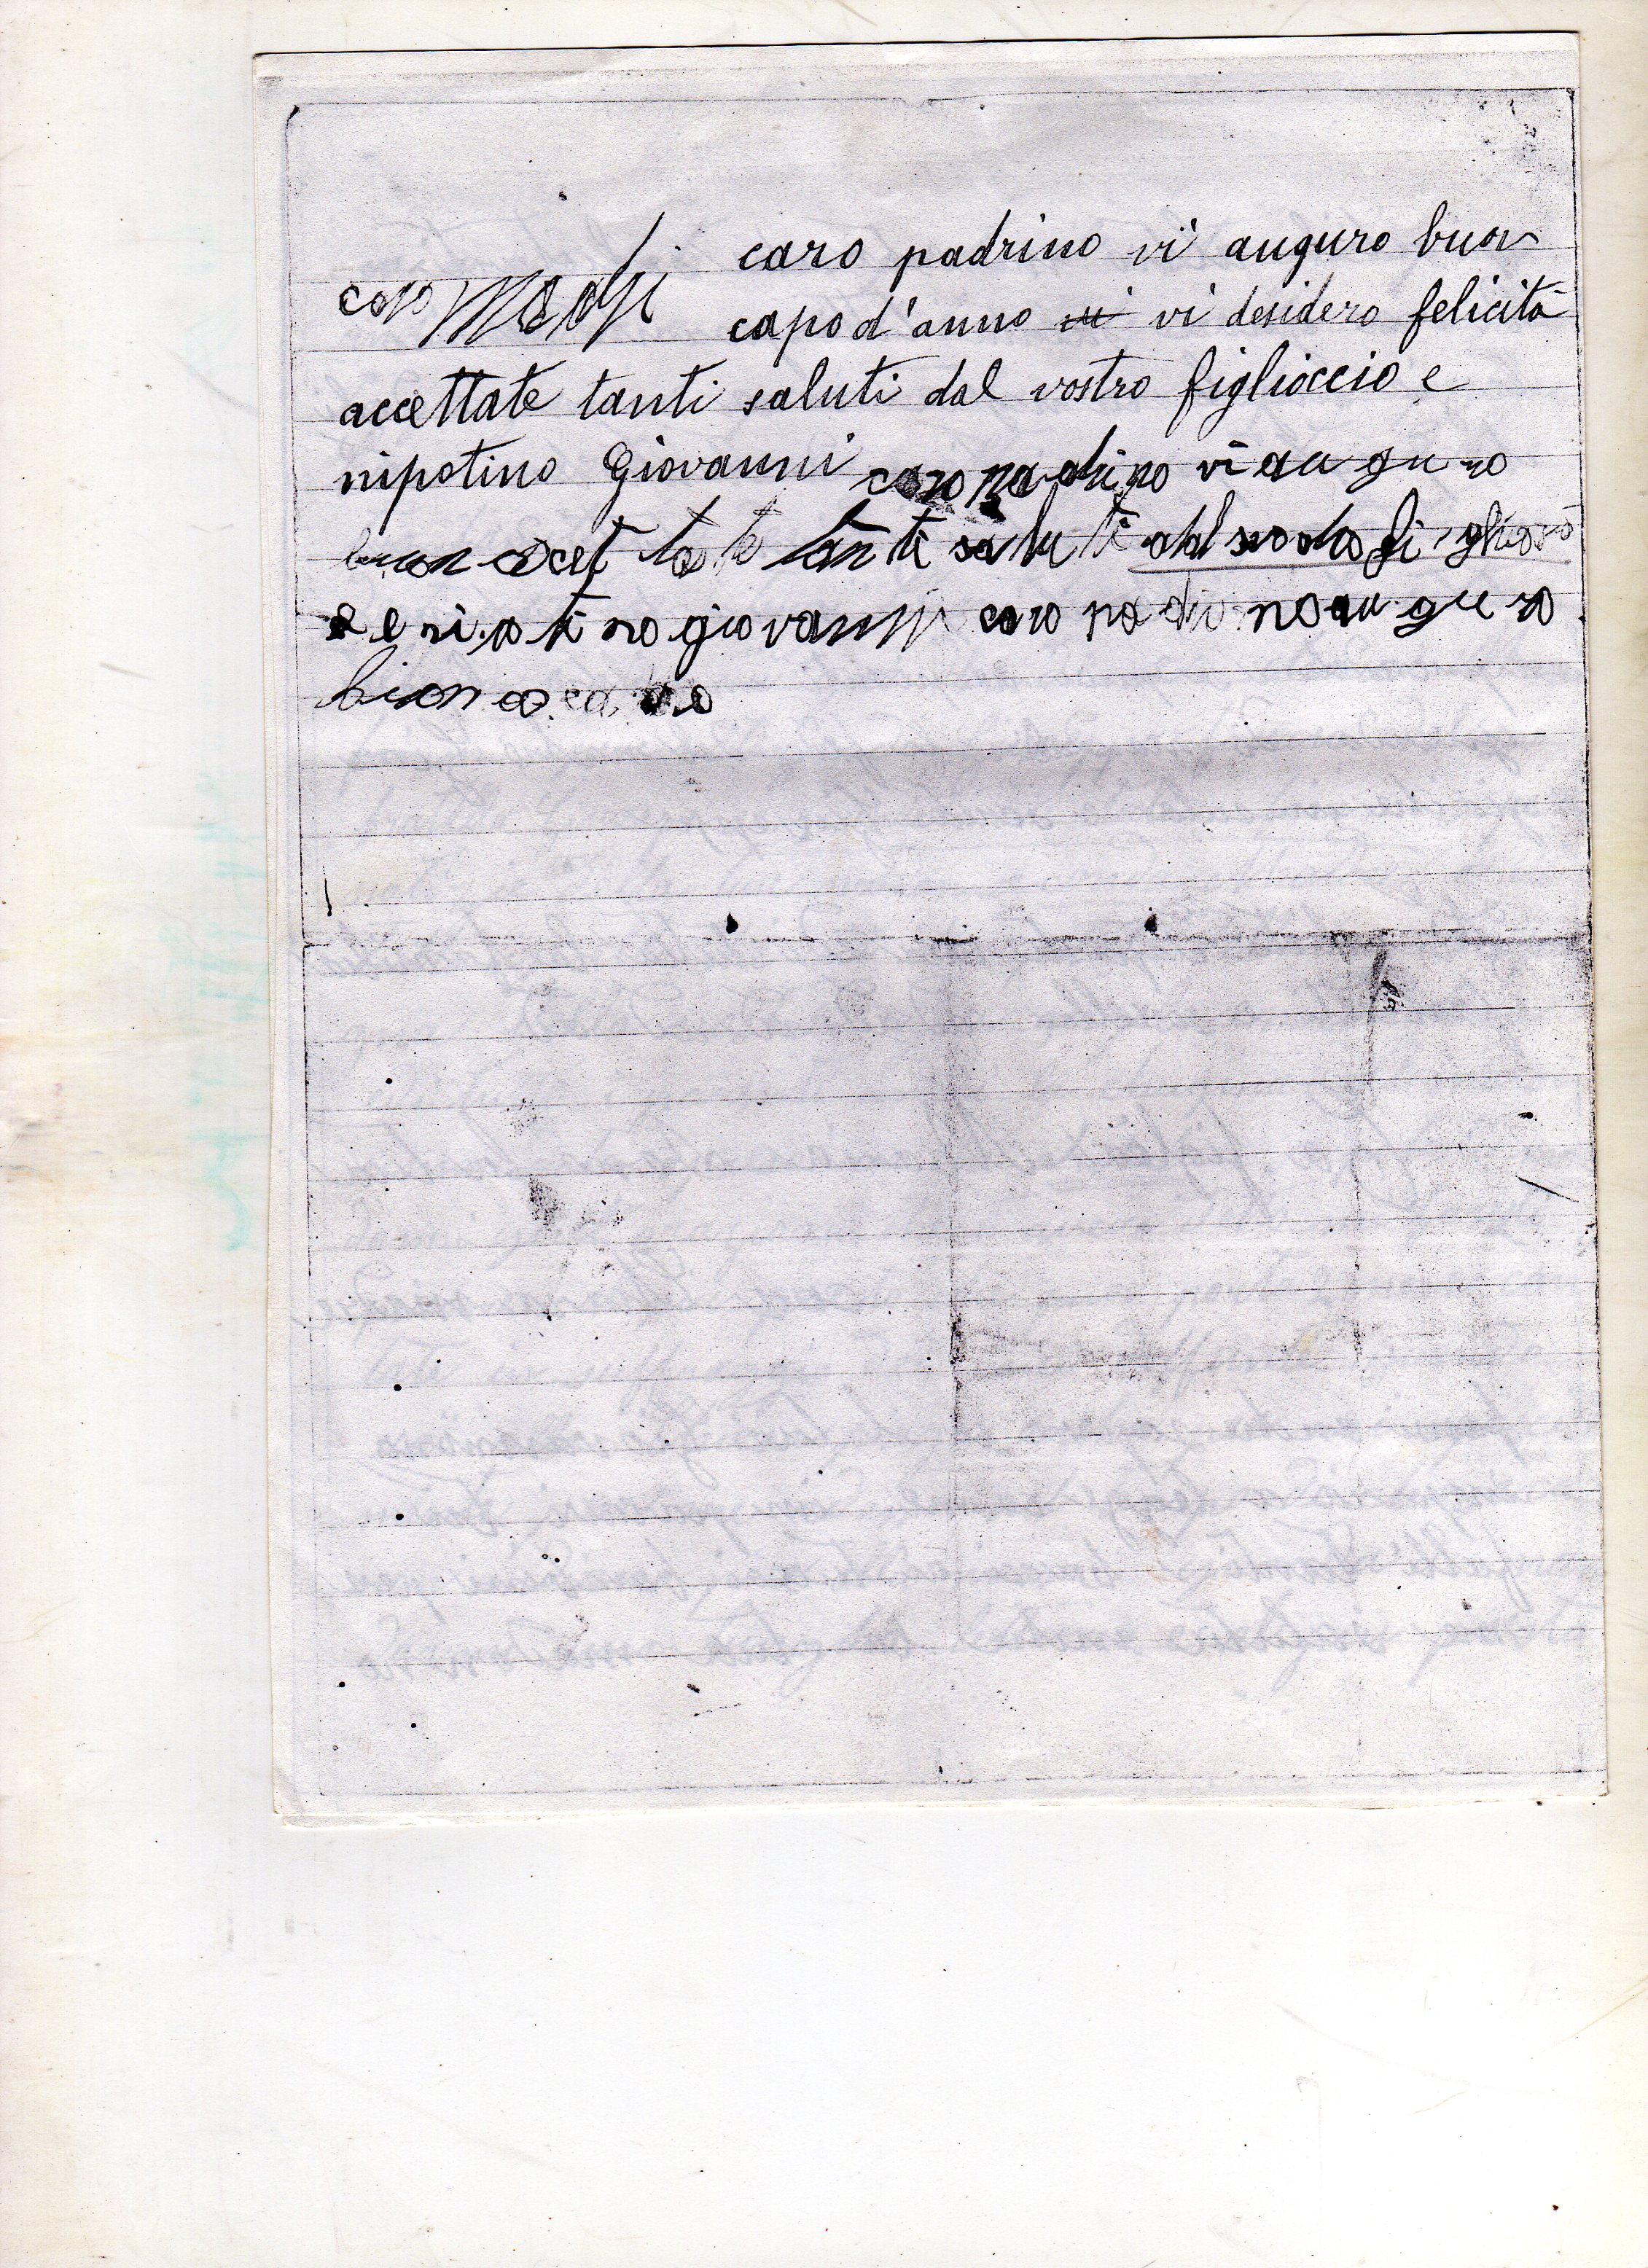 caro padrino vi auguro buon
caro
capo d'anno vi desidero felicità
accettate tanti saluti dal vostro figlioccio e
nipotino Giovanni caro padrino vi au gu ro
buon accet ta te tan ti sa lu ti dal vostro fi glioccio
e ni po ti no giovanni caro pa dri no au gu ro
buon